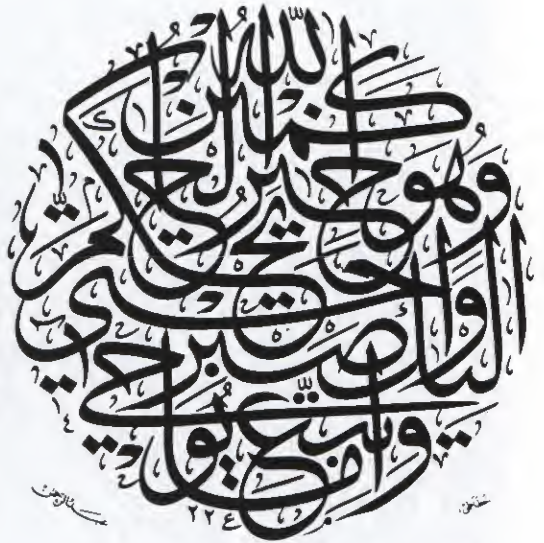 واتبع ما يوحى
إليك واصبر حتى يحكم
الله وهو خير الحاكمين